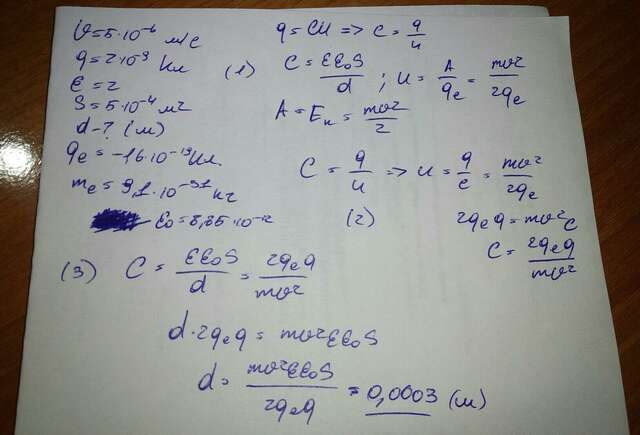 υ=5·10⁻⁶ м/с
q=2·10⁻⁹ Кл
ε=2
S=5·10⁻⁴ м²
d-? (м)
qe=-16·10⁻¹⁹ Кл.
me=9,1·10⁻³¹ кг
ε0=8,85·10⁻¹²
q=CU => C=q/u
(1) C=εε0S/d ; u=A/qe=mυ²/2qe
A=Eк=mυ²/2
C=q/u => u=q/c=mυ²/2qe
(2) 2qeq=mυ²C
C=2qeq/mυ²
(3) C=εε0S/d=2qeq/mυ²
d·2qeq=mυ²εε0S
d=mυ²εε0S/2qeq=0,0003 (м)